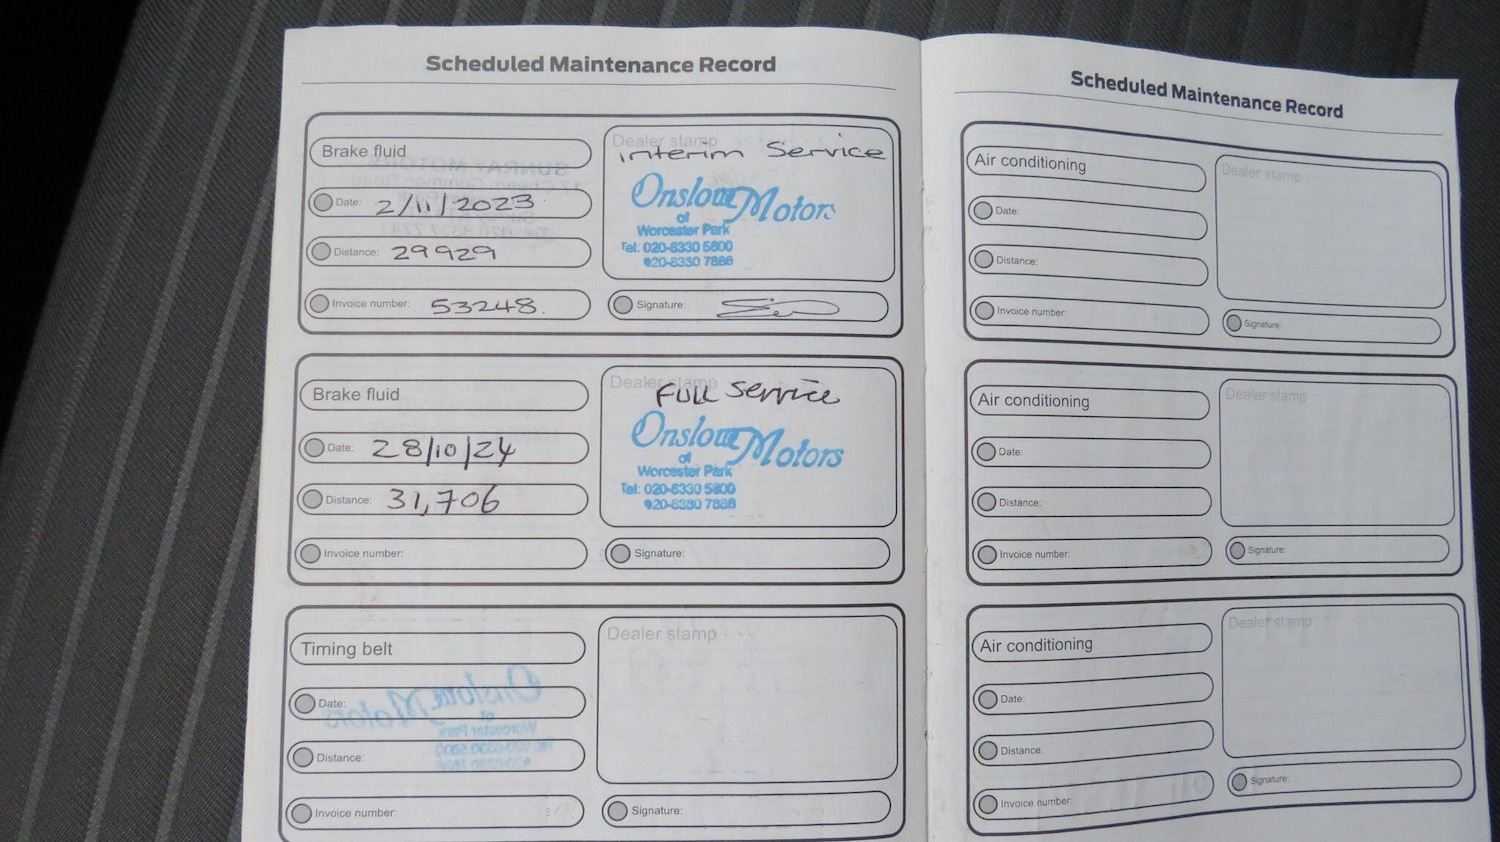 Scheduled Maintenance Record
Brake fluid
Date: 2/11/2023
Distance: 29929
Invoice number: 53248.
Dealer stamp
interim Service
Onslow Motors
of
Worcester Park
Tel: 020-8330 5600
020-8330 7888
Signature:
Brake fluid
Date: 28/10/24
Distance: 31,706
Invoice number:
Dealer stamp
FULL Service
Onslow Motors
of
Worcester Park
Tel: 020-8330 5600
020-8330 7888
Signature:
Timing belt
Date:
Distance:
Invoice number:
Dealer stamp
Signature:
Scheduled Maintenance Record
Air conditioning
Date:
Distance:
Invoice number:
Dealer stamp
Signature:
Air conditioning
Date:
Distance:
Invoice number:
Dealer stamp
Signature:
Air conditioning
Date:
Distance:
Invoice number:
Dealer stamp
Signature: